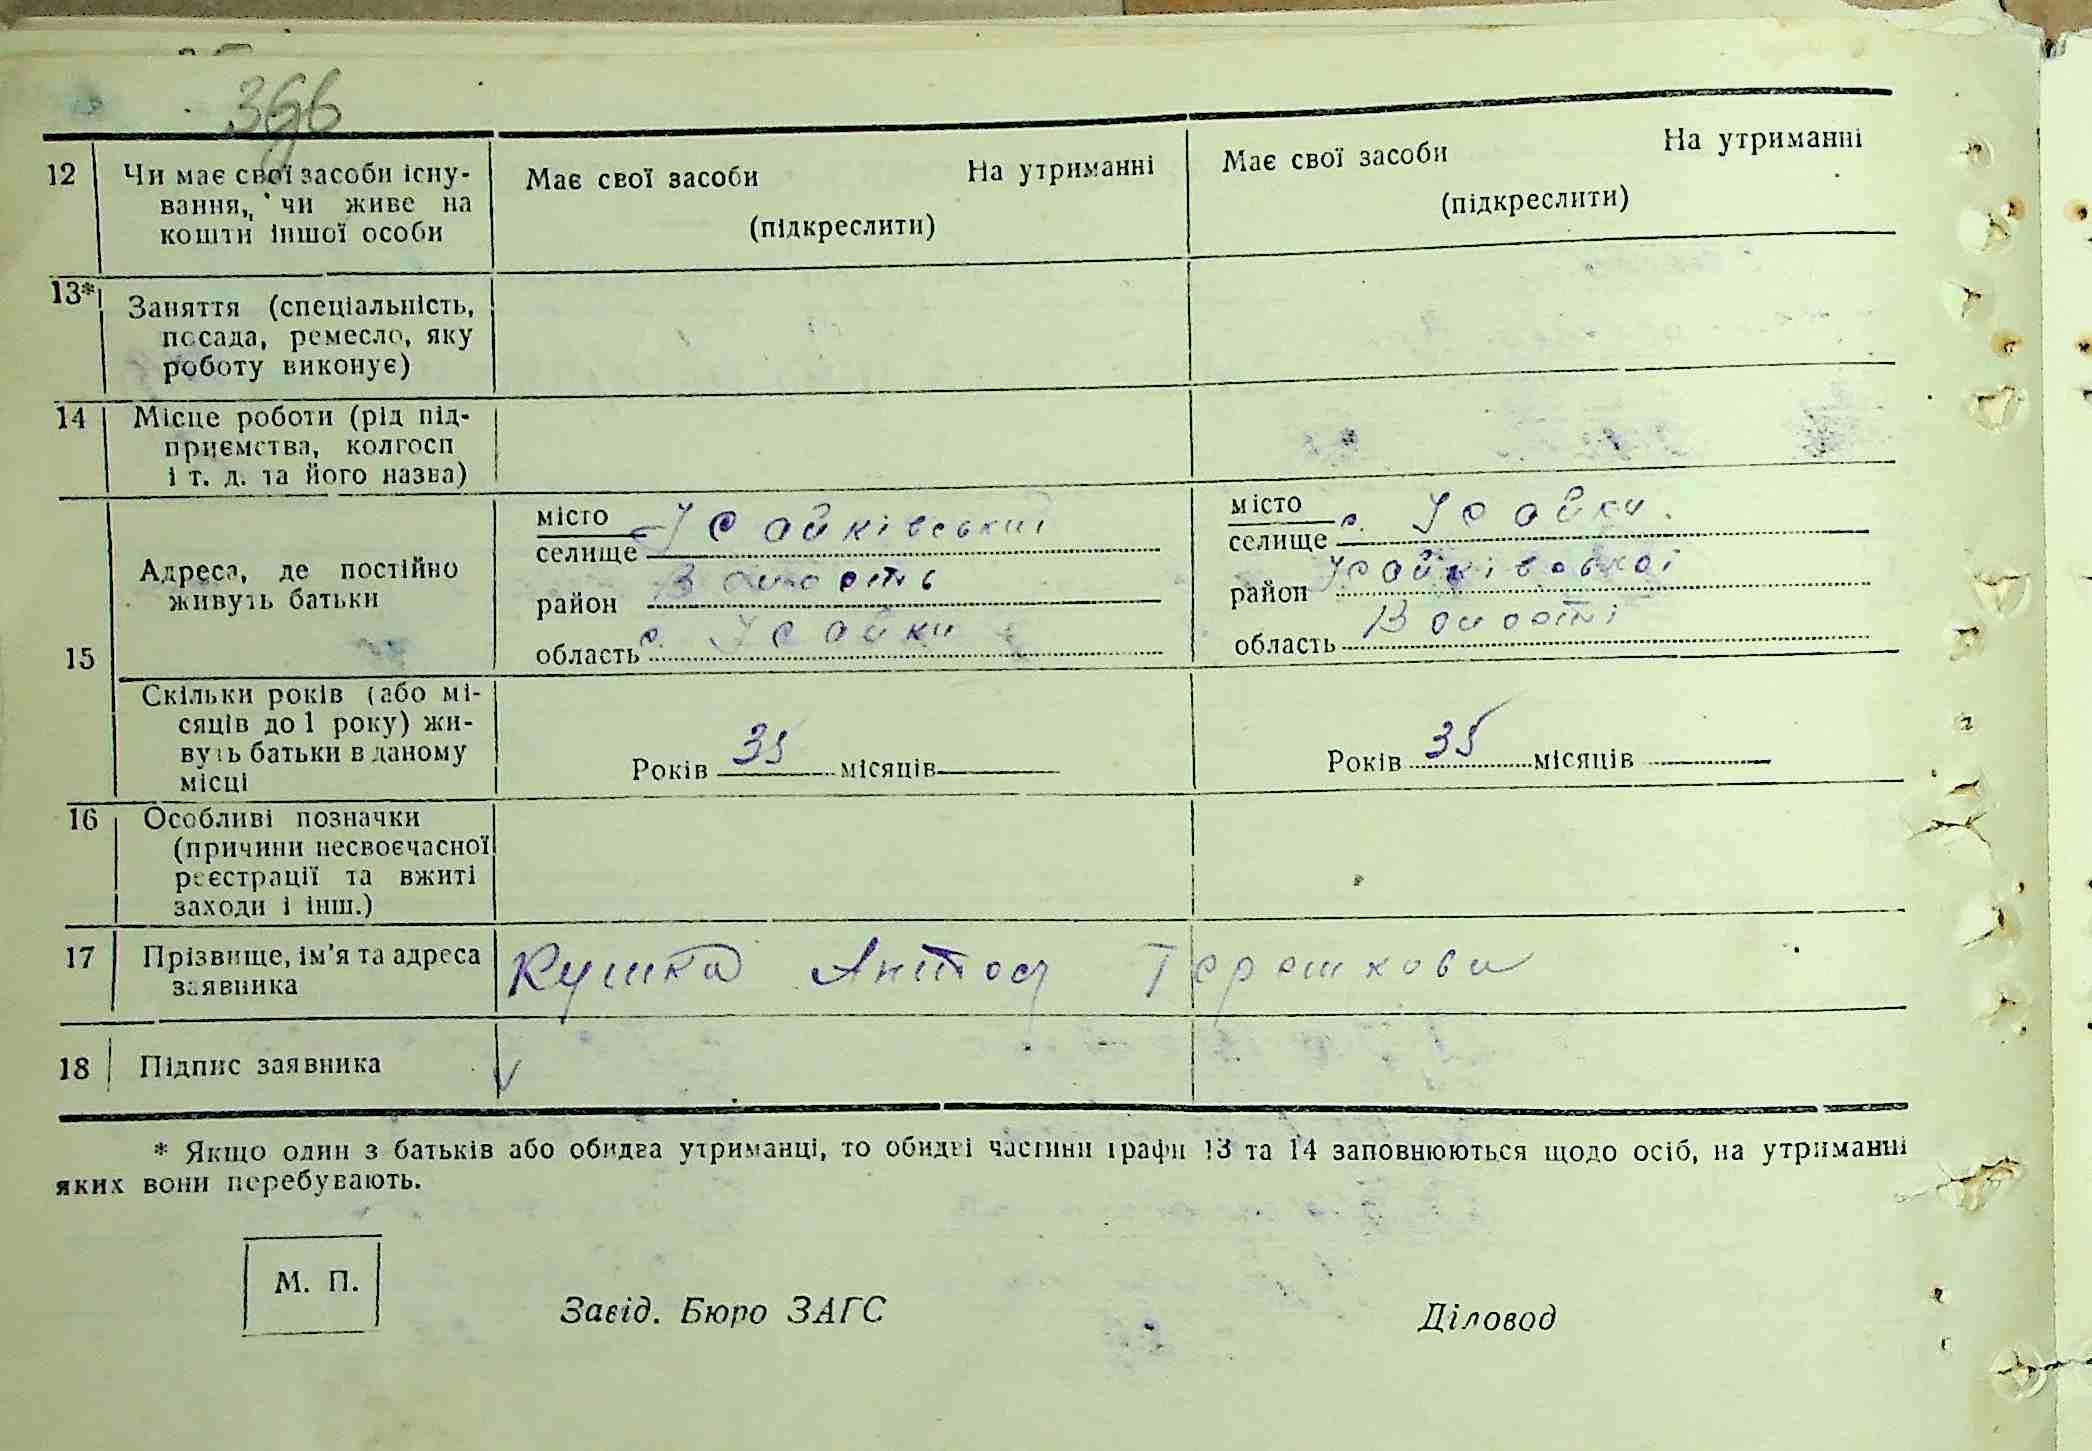 12 Чи має свої засоби існу-
вання, чи живе на
кошти іншої особи
Має свої засоби На утриманні
(підкреслити)
Має свої засоби На утриманні
(підкреслити)
13* Заняття (спеціальність,
посада, ремесло, яку
роботу виконує)
14 Місце роботи (рід під-
приємства, колгосп
і т. д. та його назва)
15 Адреса, де постійно
живуть батьки
місто
селище Усайківський
район Волость
область с. Усайки
місто
селище с. Усайки
район Усайківської
область Волості
Скільки років (або мі-
сяців до 1 року) жи-
вуть батьки в даному
місці
Років 35 місяців
Років 35 місяців
16 Особливі позначки
(причини несвоєчасної
реєстрації та вжиті
заходи і інш.)
17 Прізвище, ім'я та адреса
заявника
Кушка Антон
18 Підпис заявника
* Якщо один з батьків або обидва утриманці, то обидві частини графи 13 та 14 заповнюються щодо осіб, на утриманні
яких вони перебувають.
М. П.
Завід. Бюро ЗАГС Діловод